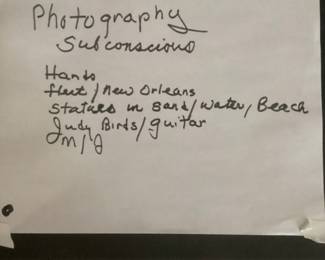 Photography
Subconscious
Hands
/ New Orleans
Statues in Sand/water/Beach
Judy Birds/guitar
M/J